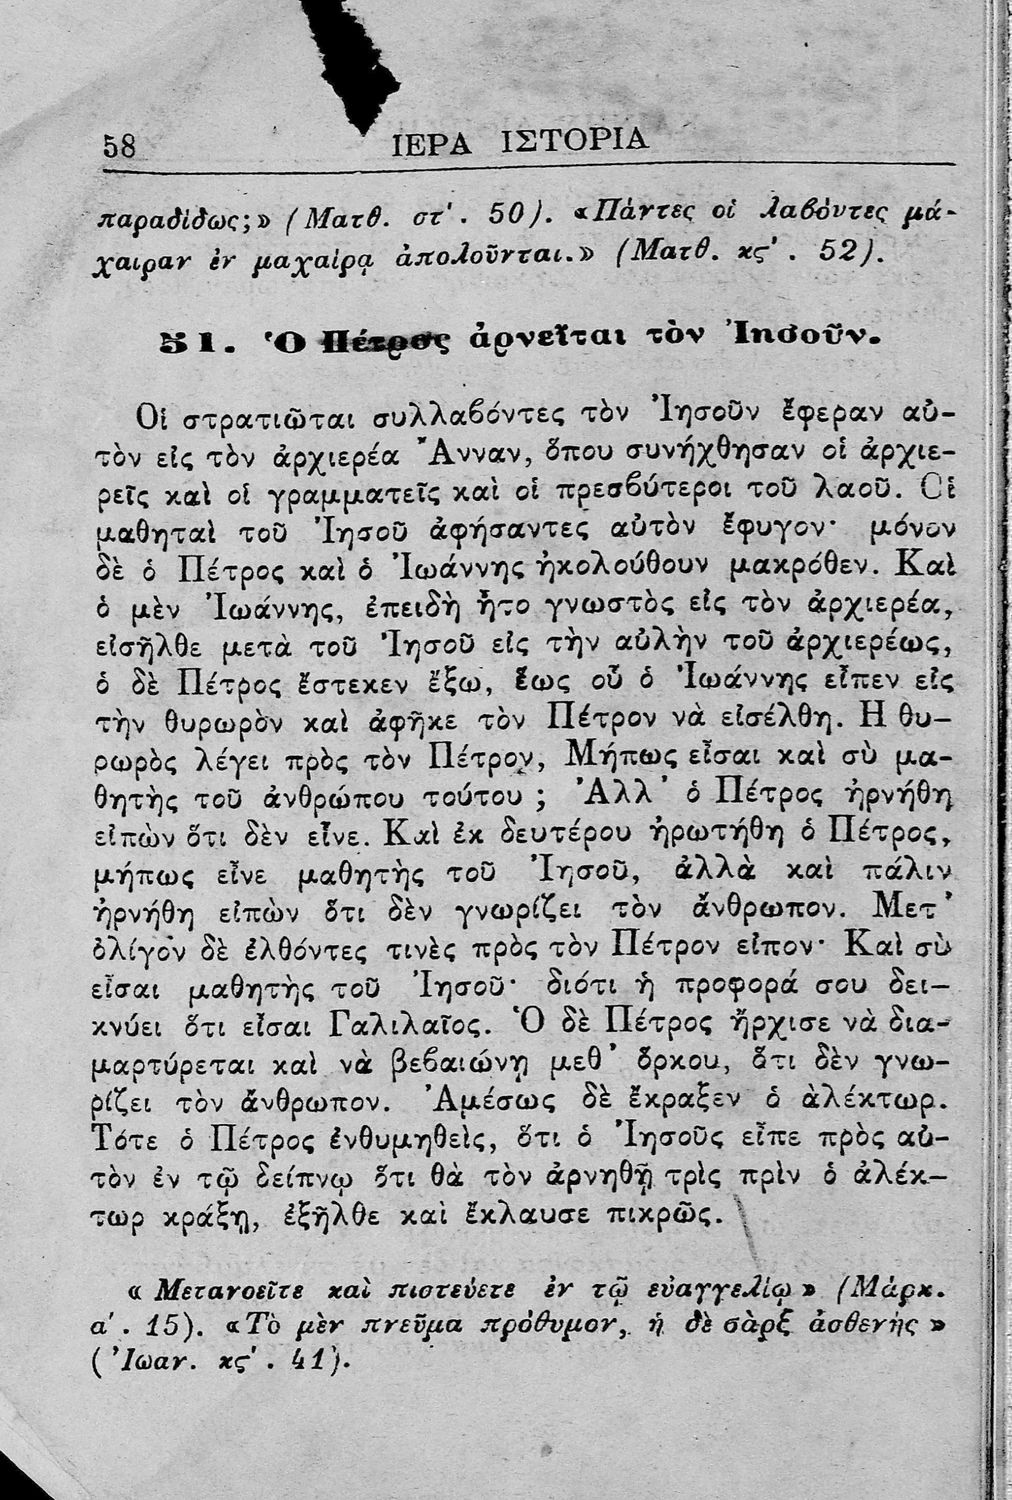 58 ΙΕΡΑ ΙΣΤΟΡΙΑ
παραδίδως;» (Ματθ. στ'. 50). «Πάντες οἱ λαβόντες μά-
χαιραν ἐν μαχαίρᾳ ἀπολοῦνται.» (Ματθ. κς'. 52).
51. Ὁ Πέτρος ἀρνεῖται τὸν Ἰησοῦν.
Οἱ στρατιῶται συλλαβόντες τὸν Ἰησοῦν ἔφεραν αὐ-
τὸν εἰς τὸν ἀρχιερέα Ἄνναν, ὅπου συνήχθησαν οἱ ἀρχιε-
ρεῖς καὶ οἱ γραμματεῖς καὶ οἱ πρεσβύτεροι τοῦ λαοῦ. Οἱ
μαθηταὶ τοῦ Ἰησοῦ ἀφήσαντες αὐτὸν ἔφυγον· μόνον
δὲ ὁ Πέτρος καὶ ὁ Ἰωάννης ἠκολούθουν μακρόθεν. Καὶ
ὁ μὲν Ἰωάννης, ἐπειδὴ ἦτο γνωστὸς εἰς τὸν ἀρχιερέα,
εἰσῆλθε μετὰ τοῦ Ἰησοῦ εἰς τὴν αὐλὴν τοῦ ἀρχιερέως,
ὁ δὲ Πέτρος ἔστεκεν ἔξω, ἕως οὗ ὁ Ἰωάννης εἶπεν εἰς
τὴν θυρωρὸν καὶ ἀφῆκε τὸν Πέτρον νὰ εἰσέλθῃ. Η θυ-
ρωρὸς λέγει πρὸς τὸν Πέτρον, Μήπως εἶσαι καὶ σὺ μα-
θητὴς τοῦ ἀνθρώπου τούτου; Ἀλλ' ὁ Πέτρος ἠρνήθη
εἰπὼν ὅτι δὲν εἶνε. Καὶ ἐκ δευτέρου ἠρωτήθη ὁ Πέτρος,
μήπως εἶνε μαθητὴς τοῦ Ἰησοῦ, ἀλλὰ καὶ πάλιν
ἠρνήθη εἰπὼν ὅτι δὲν γνωρίζει τὸν ἄνθρωπον. Μετ'
ὀλίγον δὲ ἐλθόντες τινὲς πρὸς τὸν Πέτρον εἶπον· Καὶ σὺ
εἶσαι μαθητὴς τοῦ Ἰησοῦ· διότι ἡ προφορά σου δει-
κνύει ὅτι εἶσαι Γαλιλαῖος. Ὁ δὲ Πέτρος ἤρχισε νὰ δια-
μαρτύρεται καὶ νὰ βεβαιώνῃ μεθ' ὅρκου, ὅτι δὲν γνω-
ρίζει τὸν ἄνθρωπον. Ἀμέσως δὲ ἔκραξεν ὁ ἀλέκτωρ.
Τότε ὁ Πέτρος ἐνθυμηθεὶς, ὅτι ὁ Ἰησοῦς εἶπε πρὸς αὐ-
τὸν ἐν τῷ δείπνῳ ὅτι θὰ τὸν ἀρνηθῇ τρὶς πρὶν ὁ ἀλέκ-
τωρ κράξῃ, ἐξῆλθε καὶ ἔκλαυσε πικρῶς.
« Μετανοεῖτε καὶ πιστεύετε ἐν τῷ εὐαγγελίῳ » (Μάρκ.
α'. 15). «Τὸ μὲν πνεῦμα πρόθυμον, ἡ δὲ σὰρξ ἀσθενής »
(Ἰωαν. κς'. 41).